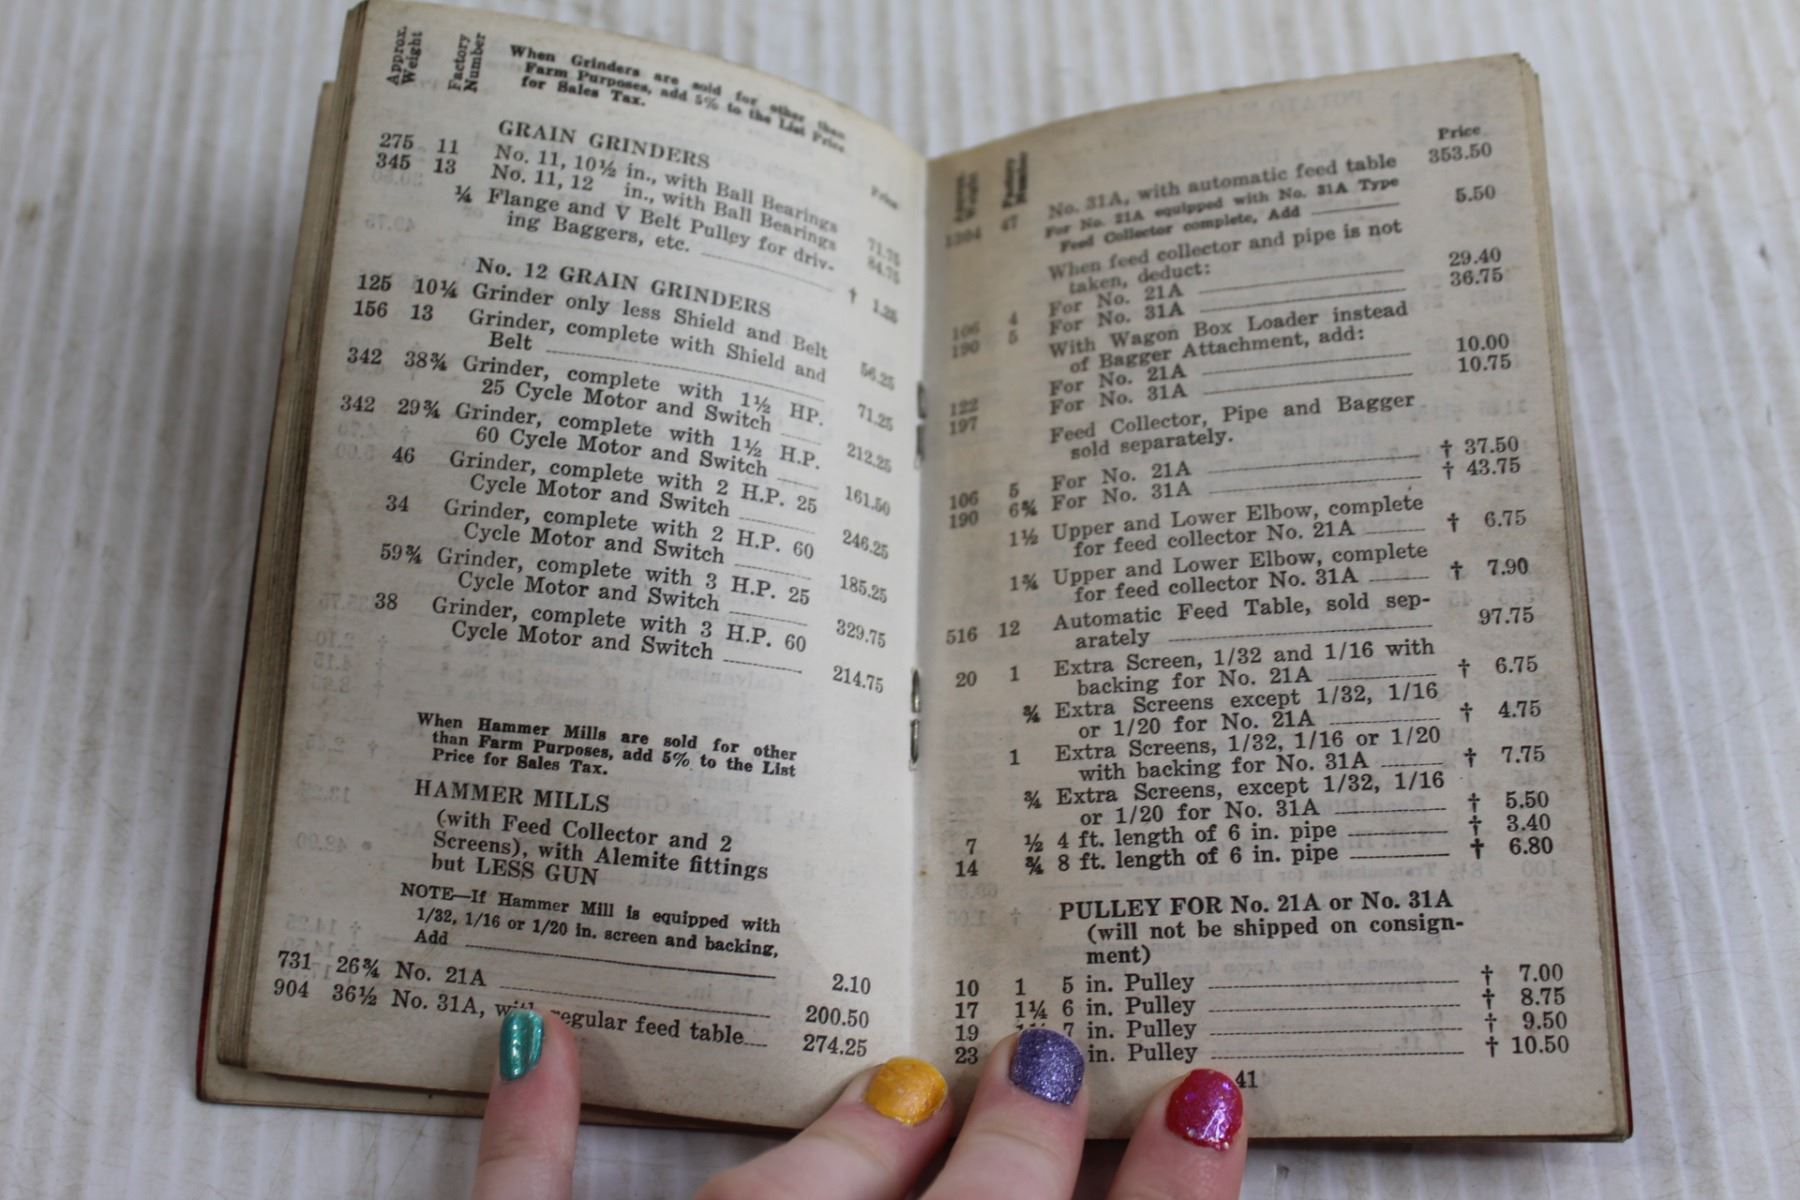 Approx. Weight
Factory Number
When Grinders are sold for other than
Farm Purposes, add 5% to the List Price
for Sales Tax.
Price
GRAIN GRINDERS
275 11 No. 11, 10½ in., with Ball Bearings 71.75
345 13 No. 11, 12 in., with Ball Bearings 84.75
¼ Flange and V Belt Pulley for driv-
ing Baggers, etc. † 1.25
No. 12 GRAIN GRINDERS
125 10¼ Grinder only less Shield and Belt 56.25
156 13 Grinder, complete with Shield and
Belt 71.25
342 38¾ Grinder, complete with 1½ HP.
25 Cycle Motor and Switch 212.25
342 29¾ Grinder, complete with 1½ H.P.
60 Cycle Motor and Switch 161.50
46 Grinder, complete with 2 H.P. 25
Cycle Motor and Switch 246.25
34 Grinder, complete with 2 H.P. 60
Cycle Motor and Switch 185.25
59¾ Grinder, complete with 3 H.P. 25
Cycle Motor and Switch 329.75
38 Grinder, complete with 3 H.P. 60
Cycle Motor and Switch 214.75
When Hammer Mills are sold for other
than Farm Purposes, add 5% to the List
Price for Sales Tax.
HAMMER MILLS
(with Feed Collector and 2
Screens), with Alemite fittings
but LESS GUN
NOTE—If Hammer Mill is equipped with
1/32, 1/16 or 1/20 in. screen and backing,
Add 2.10
731 26¾ No. 21A 200.50
904 36½ No. 31A, with regular feed table 274.25
Approx. Weight
Factory Number
Price
1304 47 No. 31A, with automatic feed table 353.50
For No. 21A equipped with No. 31A Type
Feed Collector complete, Add 5.50
When feed collector and pipe is not
taken, deduct:
106 4 For No. 21A 29.40
190 5 For No. 31A 36.75
With Wagon Box Loader instead
of Bagger Attachment, add:
122 For No. 21A 10.00
197 For No. 31A 10.75
Feed Collector, Pipe and Bagger
sold separately.
106 5 For No. 21A † 37.50
190 6¾ For No. 31A † 43.75
1½ Upper and Lower Elbow, complete
for feed collector No. 21A † 6.75
1¾ Upper and Lower Elbow, complete
for feed collector No. 31A † 7.90
516 12 Automatic Feed Table, sold sep-
arately 97.75
20 1 Extra Screen, 1/32 and 1/16 with
backing for No. 21A † 6.75
¾ Extra Screens except 1/32, 1/16
or 1/20 for No. 21A † 4.75
1 Extra Screens, 1/32, 1/16 or 1/20
with backing for No. 31A † 7.75
¾ Extra Screens, except 1/32, 1/16
or 1/20 for No. 31A † 5.50
7 ½ 4 ft. length of 6 in. pipe † 3.40
14 ¾ 8 ft. length of 6 in. pipe † 6.80
PULLEY FOR No. 21A or No. 31A
(will not be shipped on consign-
ment)
10 1 5 in. Pulley † 7.00
17 1¼ 6 in. Pulley † 8.75
19 7 in. Pulley † 9.50
23 in. Pulley † 10.50
41